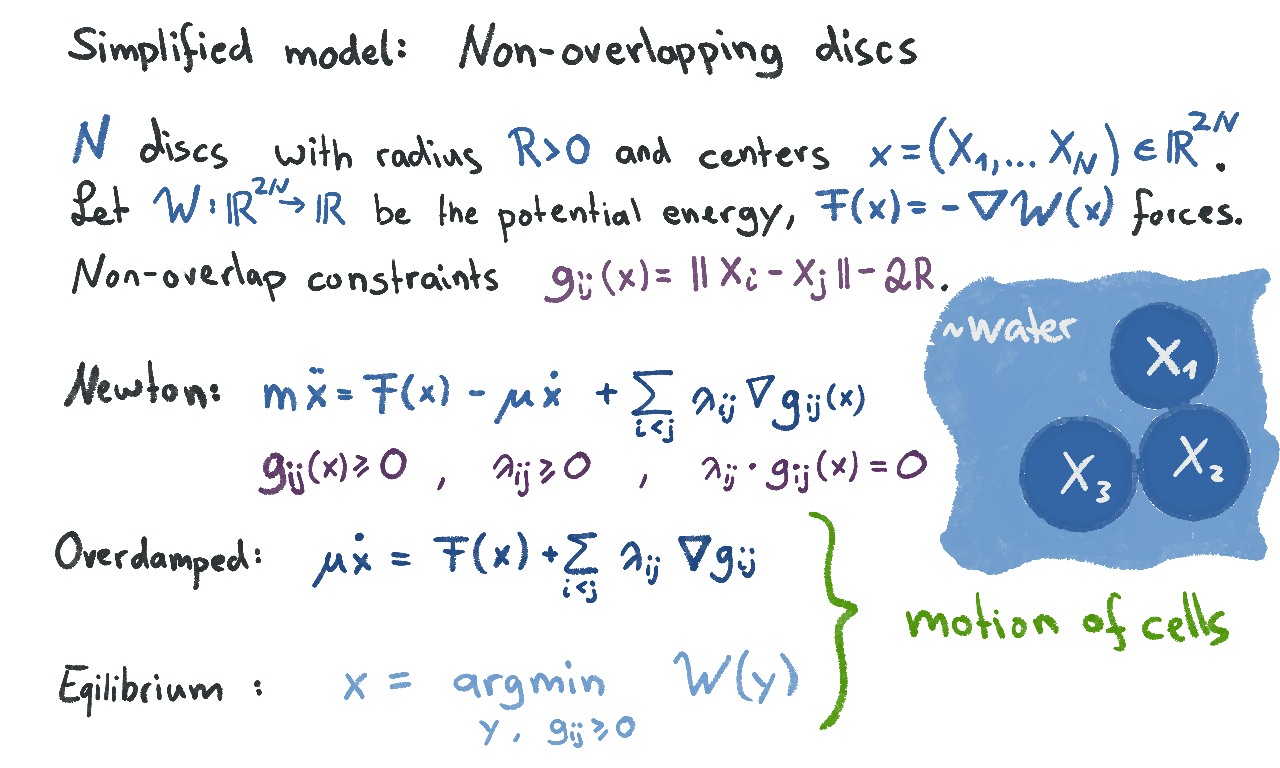 Simplified model: Non-overlapping discs
N discs with radius R>0 and centers x = (X₁,... X_N) ∈ ℝ²ᴺ.
Let W: ℝ²ᴺ → ℝ be the potential energy, F(x) = - ∇W(x) forces.
Non-overlap constraints g_ij(x) = ‖X_i - X_j‖ - 2R.
~water
X₁
X₂
X₃
Newton: mẍ = F(x) - μẋ + ∑_{i<j} λ_ij ∇g_ij(x)
g_ij(x) ⩾ 0 , λ_ij ⩾ 0 , λ_ij · g_ij(x) = 0
Overdamped: μẋ = F(x) + ∑_{i<j} λ_ij ∇g_ij
motion of cells
Eqilibrium : x = argmin W(y)
y, g_ij ⩾ 0